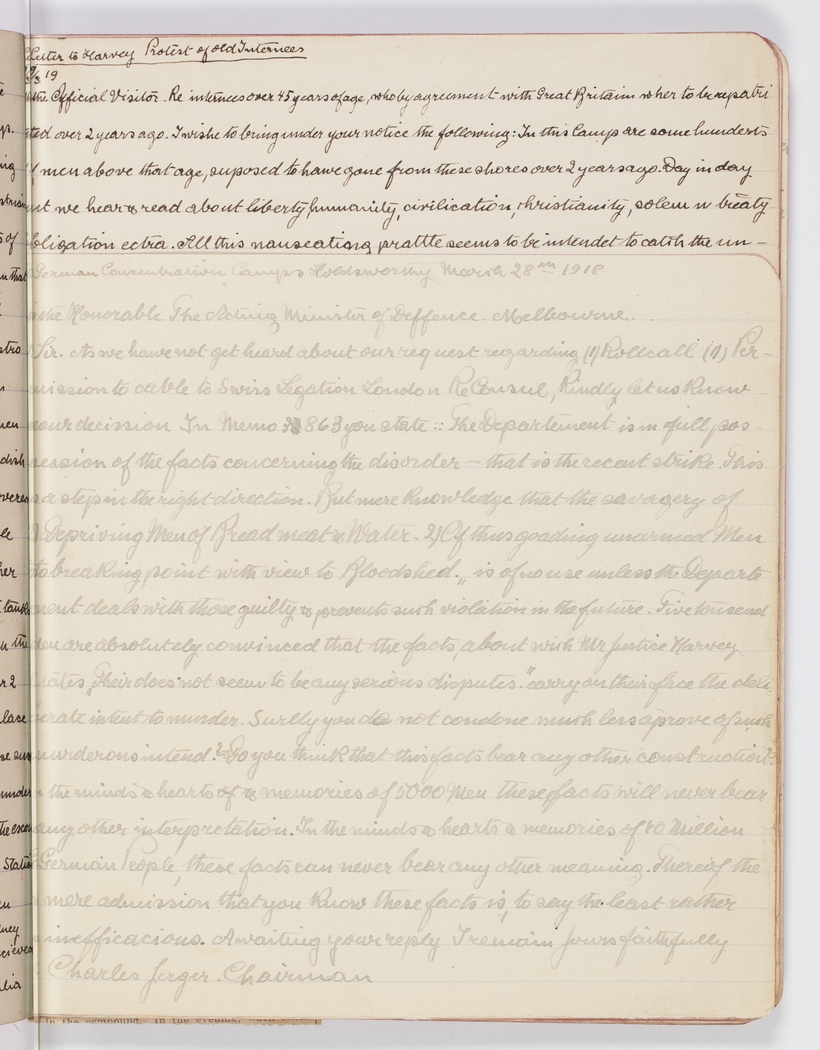 Letter to Harvey Protest of old Internees
19
the Official Visitor. Re internees over 45 years of age, who by agreement with Great Britain wher to be repatri
ted over 2 years ago. I wishe to bring under your notice the following: In this Camp are some hunderts
men above that age, suposed to hawe gone from these shores over 2 years ago. Day in day
ut we hear & read about liberty, humanity, civilication, christianity, solem n treaty
obligation ectra. All this nauseating prattle seems to be intendet to catch the un-
German Concentration Camps Holdsworthy March 28th 1918.
the Honorable The Acting Minister of Deffence. Melbourne.
Sir. As we hawe not get heard about our request regarding (1) Rollcall (11) Per-
mission to cable to Swiss Legation London Re Consul, Kindly let us Know
your decission In Memo 863 you state :: The Departement is in full pos-
session of the facts concerning the disorder - that is the recent strike. This
is a step in the right direction. But mere Knowledge that the savagery of
1) Depriving Men of Bread meat & Water. 2) Of thus goading unarmed Men
to breaking point with view to Bloodshed. „ is of no use unless the Departe
ment deals with those guilty & prevents such violation in the future. Five tousend
Men are absolutely convinced that the facts, about wish Mr Justice Harvey
states „Their does not seem to be any serious disputes." carry on their face the deli
berate intent to murder. Surely you do not condone mush less aprove of sush
murderous intend? Do you think that this facts bear any other construction?
In the minds & hearts of & memories of 5000 Men these facts will never bear
any other interpretation. In the minds & hearts & memories of 70 Million
German People, these facts can never bear any other meaning. Thereof the
mere admission that you Know these facts is, to say the least rather
inefficacious. Awaiting your reply I remain Yours faithfully
Charles Jerger. Chairman